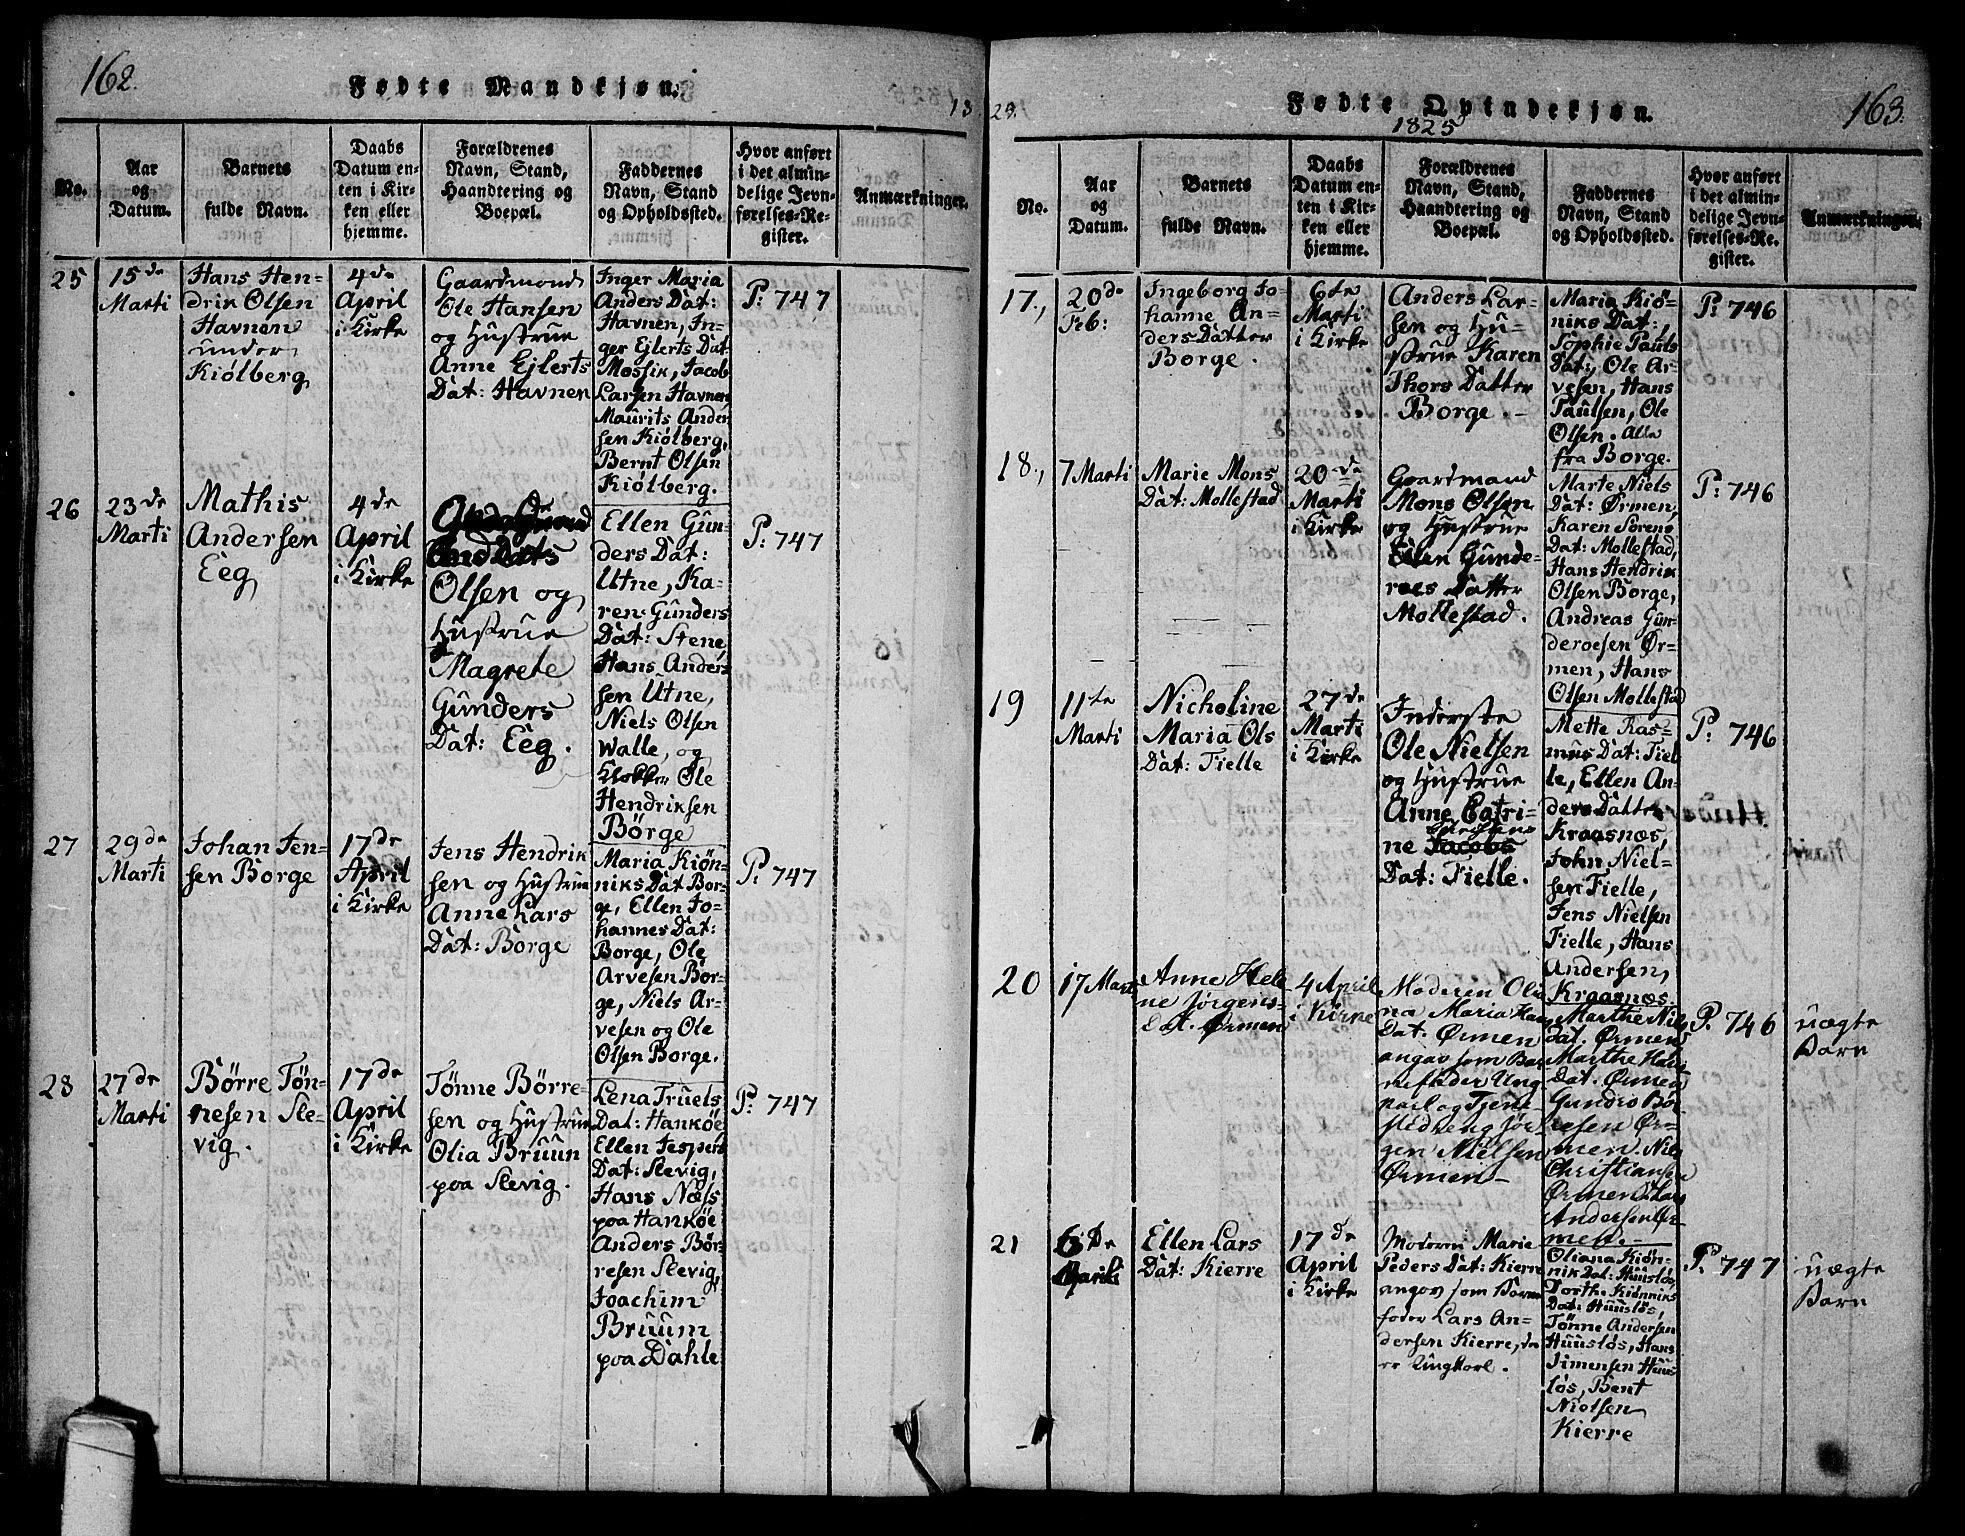 162.
Fødte Mandkjøn.
18
No.
Aar
og
Datum.
Barnets
fulde Navn.
Daabs
Datum en-
ten i Kir-
ken eller
hjemme.
Forældrenes
Navn, Stand,
Haandtering og
Boepæl.
Faddernes
Navn, Stand
og Opholdssted.
Hvor anført
i det almin-
delige Jevn-
førelses-Re-
gister.
Anmærkninger.
25
15de
Marti
Hans Hen-
drik Olsen
Havnen
under
Kiølberg
4de
April
i Kirke
Gaardmand
Ole Hansen
og Hustrue
Anne Ejlerts
Dat: Havnen
Inger Maria
Anders Dat:
Havnen, In-
ger Ejlerts Dat
Mossik, Jacob
Larsen Havnen
Maurits Ander
sen Kiølberg,
Bernt Olsen
Kiølberg.
P: 747
26
23de
Marti
Mathis
Andersen
Eeg
4de
April
i Kirke
Olsen og
Hustrue
Magrete
Gunders
Dat: Eeg.
Ellen Gun-
ders Dat:
Utne, Ka-
ren Gunders
Dat: Stene,
Hans Anders
sen Utne,
Niels Olsen
Walle, og
Klokker Ole
Hendriksen
Børge
P: 747
27
29de
Marti
Johan Jen-
sen Borge
17de
April
i Kirke
Jens Hendrik
sen og Hustrue
Anne Lars
Dat: Borge
Maria Kiøn-
niks Dat Bor-
ge, Ellen Jo-
hannes Dat:
Borge, Ole
Arvesen Bor-
ge, Niels Ar-
vesen og Ole
Olsen Borge.
P: 747
28
27de
Marti
Børre Tøn-
nesen Sle-
vig.
17de
April
i Kirke
Tønne Børre-
sen og Hustrue
Olia Bruun
paa Slevig.
Lena Truels
Dat: Hankøe,
Ellen Jespers
Dat: Slevig,
Hans Næss
paa Hankøe
Anders Bør-
resen Slevig,
Joachim
Bruum
paa Dahle
P: 747
25.
Fødte Qvindekjøn.
1825
163.
No.
Aar
og
Datum.
Barnets
fulde Navn.
Daabs
Datum en-
ten i Kir-
ken eller
hjemme.
Forældrenes
Navn, Stand,
Haandtering og
Boepæl.
Faddernes
Navn, Stand
og Opholdssted.
Hvor anført
i det almin-
delige Jevn-
førelses-Re-
gister.
Anmærkninger.
17.,
20de
Feb:
Ingeborg Jo-
hanne An-
ders Datter
Borge.
6te
Marti
i Kirke
Anders Lar-
sen og Hu-
strue Karen
Thors Datter
Borge.-
Maria Kiø-
niks Dat:,
Sophie Pauls
Dat:, Ole Ar-
vesen, Hans
Paulsen, Ole
Olsen. alle
fra Borge.
P: 746
18.,
7 Marti
Marie Mons
Dat: Mollestad
20de
Marti
i Kirke
Gaardmand
Mons Olsen
og Hustrue
Ellen Gunde-
roes Datter
Mollestad.
Marte Niels
Dat: Ørmen,
Karen Sørens
Dat: Mollestad,
Hans Hendrik
Olsen Borge,
Andreas Gun-
deroesen Ør-
men, Hans
Olsen Mollestad
P: 746
19
11te
Marti
Nicholine
Maria Ols
Dat: Fielle
27de
Marti
i Kirke
Inderste
Ole Nielsen
og Hustrue
Anne Catri-
ne Jacobs
Dat: Fielle.
Mette Ras-
mus Dat: Fiel
le, Ellen An-
ders Datter
Kraasnæs,
John Niel-
sen Fielle,
Jens Nielsen
Fielle, Hans
Andersen,
Kraasnæs.
P: 746
20
17 Marti
Anne Hele
ne Jørgens-
Dat. Ørmen
4 April
i Kirke
Moderen Oli
na Maria Han
Dat: Ørmen
angav som Bar
nefader Ung
karl og Tjene
stedreng Jør-
gen Nielsen
Ørmen-
Marthe Niels
Dat. Ørmen,
Marthe Hans
Dat. Ørmen
Gundro Bør
resen Ør-
men. Niels
Christiansen
Ørmen. Lars
Andersen Ør-
men.-
P. 746
uægte
Barn
21
6de
Marti
Ellen Lars
Dat: Kierre
17de
April
i Kirke
Moderen Marie
Peders Dat: Kierre
angav som Barne
fader Lars An-
dersen Kierre, der
er Ungkarl.
Oliana Kiøn-
nik Dat: Huusløs,
Dorth: Kiønniks
Dat: Huusløs,
Tønne Andersen
Huusløs, Hans
Simensen Huus
løs, Bent
Nielsen
Kierre
P. 747
uægte
Barn